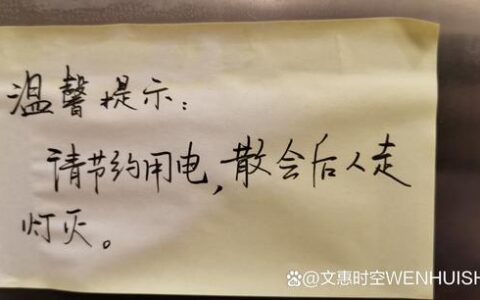 温馨提示：
请节约用电，散会后人走
灯灭。
@文惠时空WENHUISH